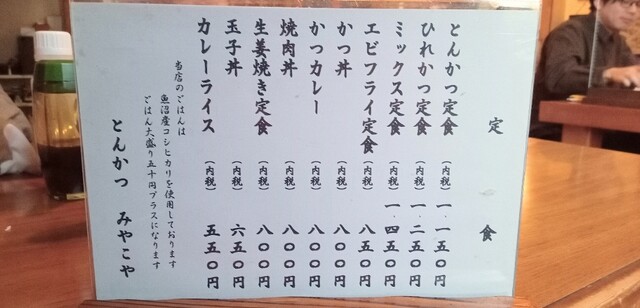 定食
とんかつ定食(内税)一.一五〇円
ひれかつ定食(内税)一.二五〇円
ミックス定食(内税)一.四五〇円
エビフライ定食(内税)八五〇円
かつ丼(内税)八〇〇円
かつカレー(内税)八〇〇円
焼肉丼(内税)八〇〇円
生姜焼き定食(内税)八〇〇円
玉子丼(内税)六五〇円
カレーライス(内税)五五〇円
当店のごはんは
魚沼産コシヒカリを使用しております
ごはん大盛り五十円プラスになります
とんかつ みやこや